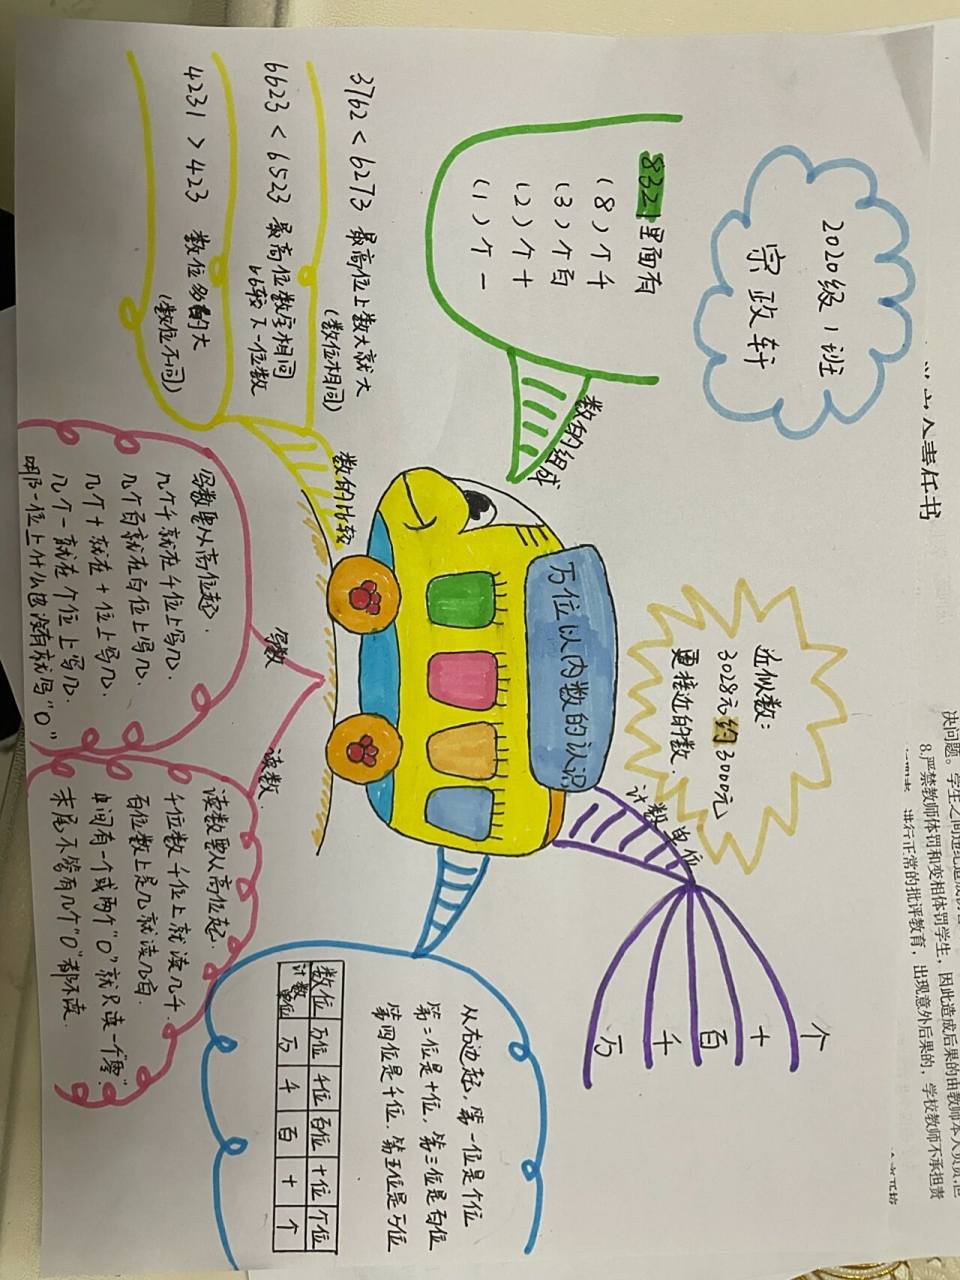 2020级1班
宗政轩
8321里面有
(8)个千
(3)个百
(2)个十
(1)个一
数的组成
3762<6273 最高位上数大就大
(数位相同)
6623<6523 最高位数字相同
比较下一位数
4231>423 数位多的大
(数位不同)
数的比较
万位以内数的认识
近似数:
3028元约3000元
更接近的数.
计数单位
个
十
百
千
万
写数
写数要从高位起.
几个千就在千位上写几.
几个百就在百位上写几.
几个十就在十位上写几.
几个一就在个位上写几.
哪一位上什么也没有就写"0"
读数.
读数要从高位起.
千位数千位上就读几千.
百位数上是几就读几百.
中间有一个或两个"0"就只读一个零"
末尾不管有几个"0"都不读.
从右边起,第一位是个位
第二位是十位,第三位是百位
第四位是千位,第五位是万位
数位 万位 千位 百位 十位 个位
计数单位 万 千 百 十 个
人责任书
决问题。学生之间
8.严禁教师体罚和变相体罚学生,因此造成后果的由教师本人负责,但
进行正常的批评教育,出现意外后果的,学校教师不承担责